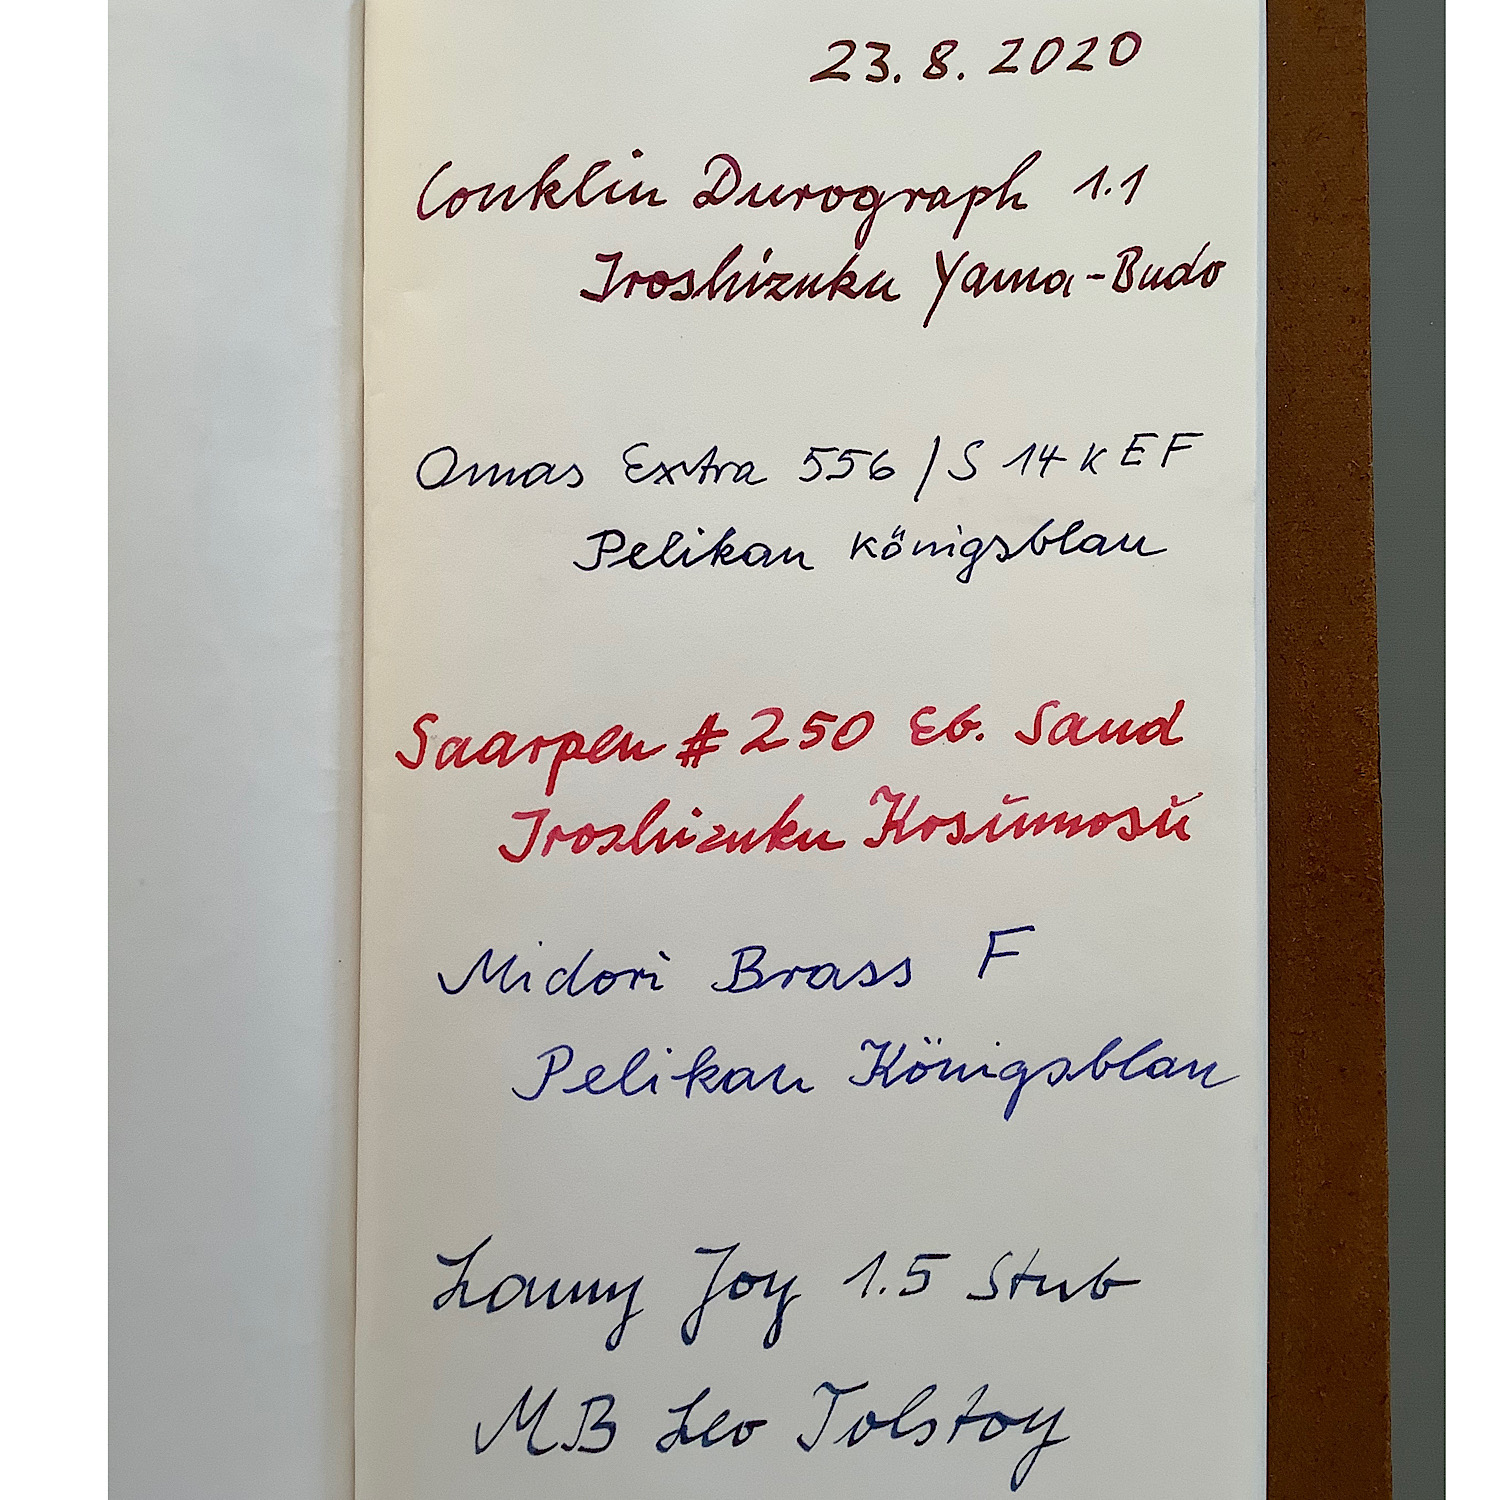 23. 8. 2020
Conklin Durograph 1.1
Iroshizuku Yama-Budo
Omas Extra 556/S 14K EF
Pelikan Königsblau
Saarpen #250 Eb. Sand
Iroshizuku Kosumosu
Midori Brass F
Pelikan Königsblau
Lamy Joy 1.5 Stub
MB Leo Tolstoy